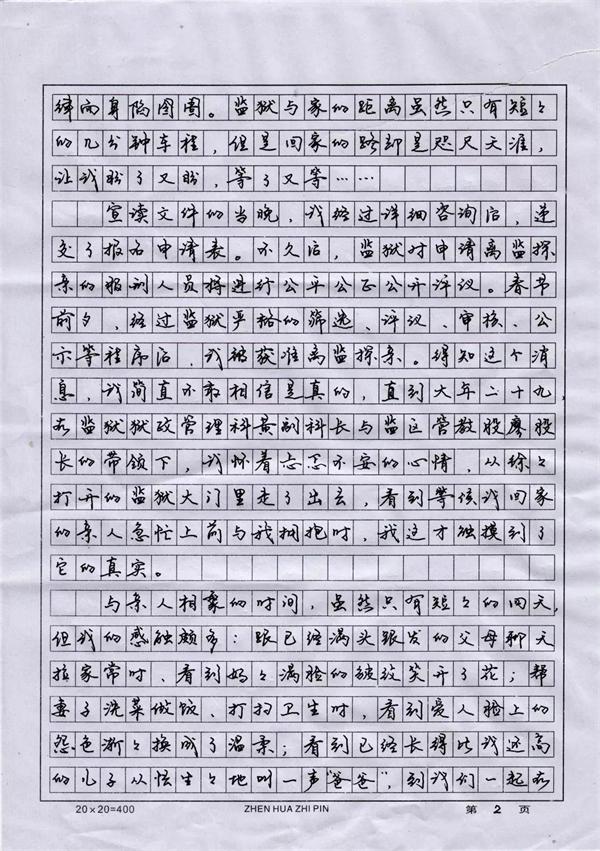 绎向身陷囹圄。监狱与家的距离虽然只有短々
的几分钟车程，但是回家的路却是咫尺天涯，
让我盼了又盼，等了又等……
宣读文件的当晚，我经过详细咨询后，递
交了报名申请表。不久后，监狱对申请离监探
亲的服刑人员将进行公平公正公开评议。春节
前夕，经过监狱严格的筛选、评议、审核、公
示等程序后，我被获准离监探亲。得知这个消
息，我简直不敢相信是真的，直到大年二十九，
在监狱狱政管理科景副科长与监区管教股廖股
长的带领下，我怀着忐忑不安的心情，从徐々
打开的监狱大门里走了出去，看到等候我回家
的亲人急忙上前与我拥抱时，我这才触摸到了
它的真实。
与亲人相聚的时间，虽然只有短々的四天，
但我的感触颇多：跟已经满头银发的父母聊天
拉家常时，看到妈々满脸的皱纹笑开了花；帮
妻子洗菜做饭、打扫卫生时，看到爱人脸上的
怨色渐々换成了温柔；看到已经长得比我还高
的儿子从怯生々地叫一声“爸爸”，到我们一起在
20×20=400 ZHEN HUA ZHI PIN 第 2 页